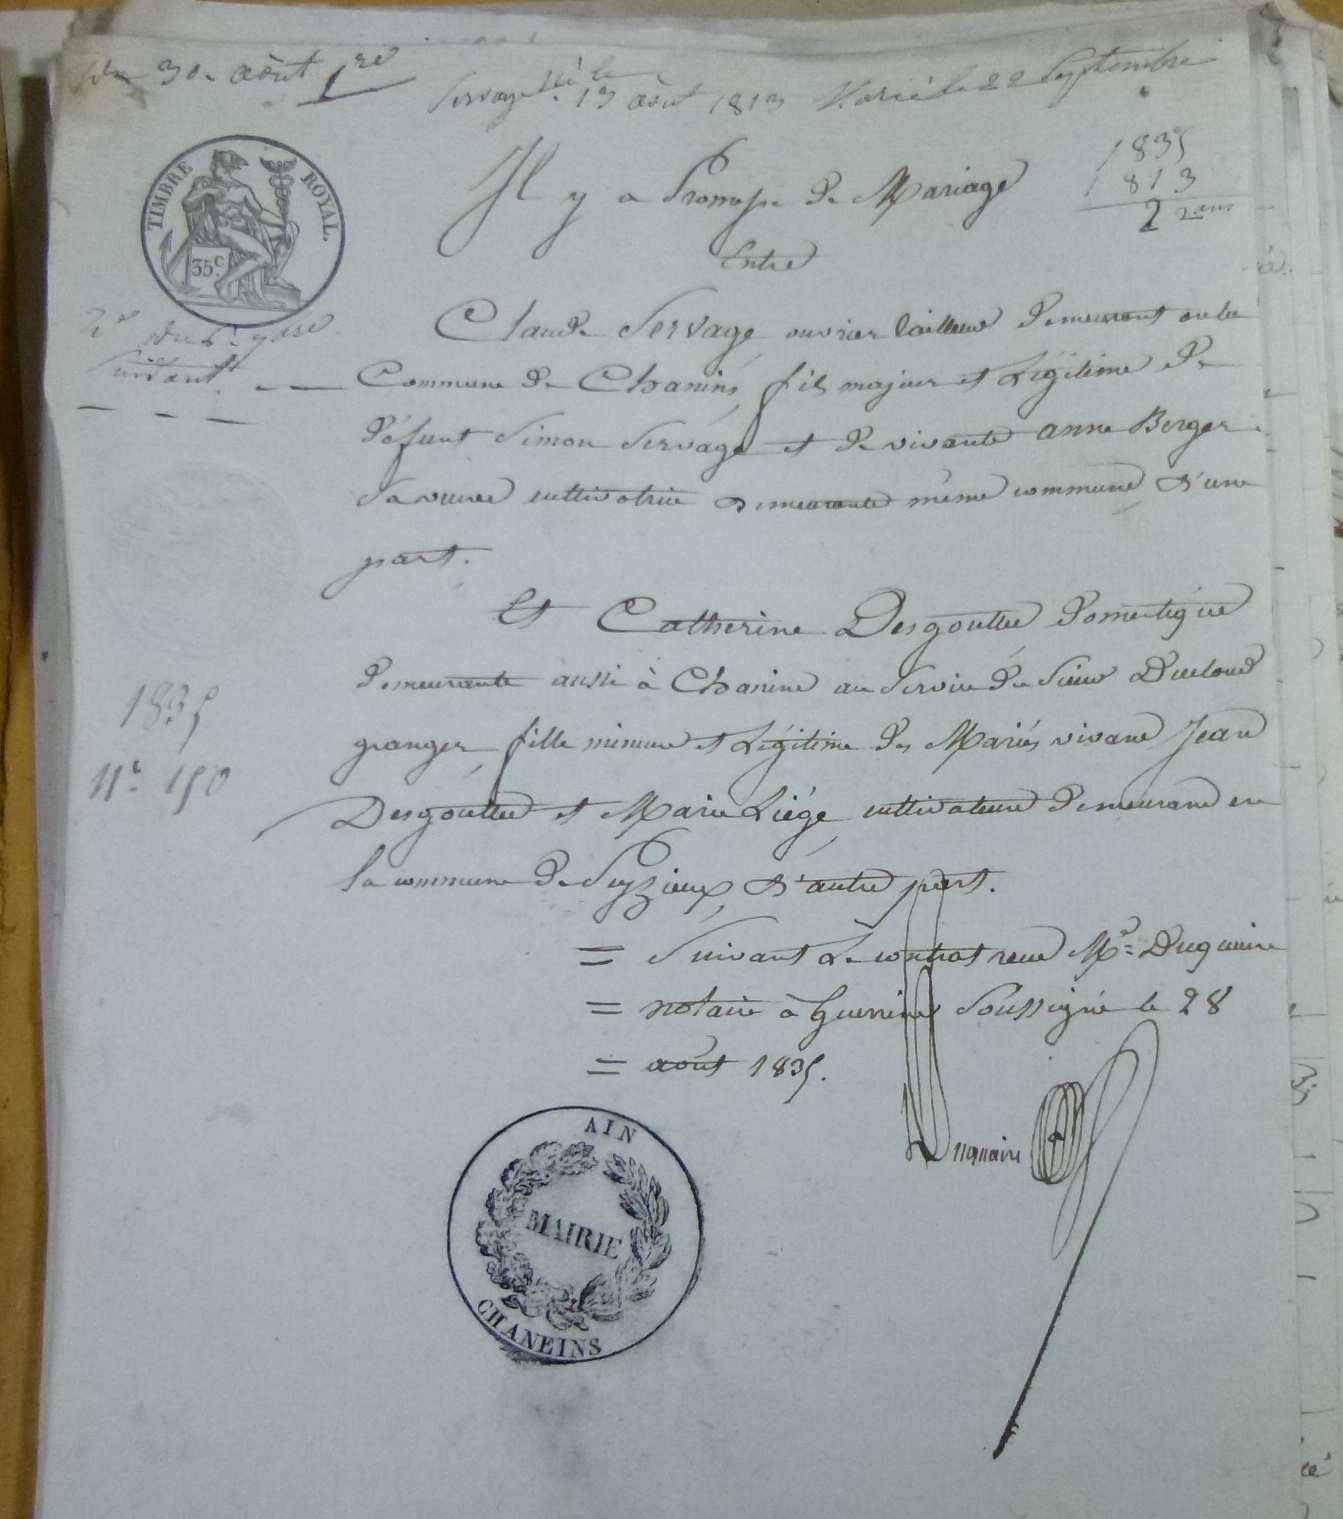 du 30. août 1re
Servage né le 13 août 1813 Marié le 22 Septembre
TIMBRE ROYAL.
35c
1835
1813
22 ans
Il y a Promesse de Mariage
Entre
2e du 6 7bre
suivant
Claude Servage ouvrier tailleur demeurant en la
Commune de Chanins, fils majeur et Légitime de
défunt Simon Servage et de vivante anne Berger
Sa veuve cultivatrice demeurante même commune, d'une
part.
Et Catherine Desgouttes domestique
demeurante aussi à Chanins au Service du Sieur
granger, fille mineure et Légitime des Mariés vivans Jean
Desgouttes et Marie Liége, cultivateurs demeurans en
la commune de Peyzieux, d'autre part.
1835
n° 150
= Suivant Le contrat reçu Me Duquaire
= notaire à Guerreins Soussigné le 28
= août 1835.
Duquaire
AIN
MAIRIE
CHANEINS